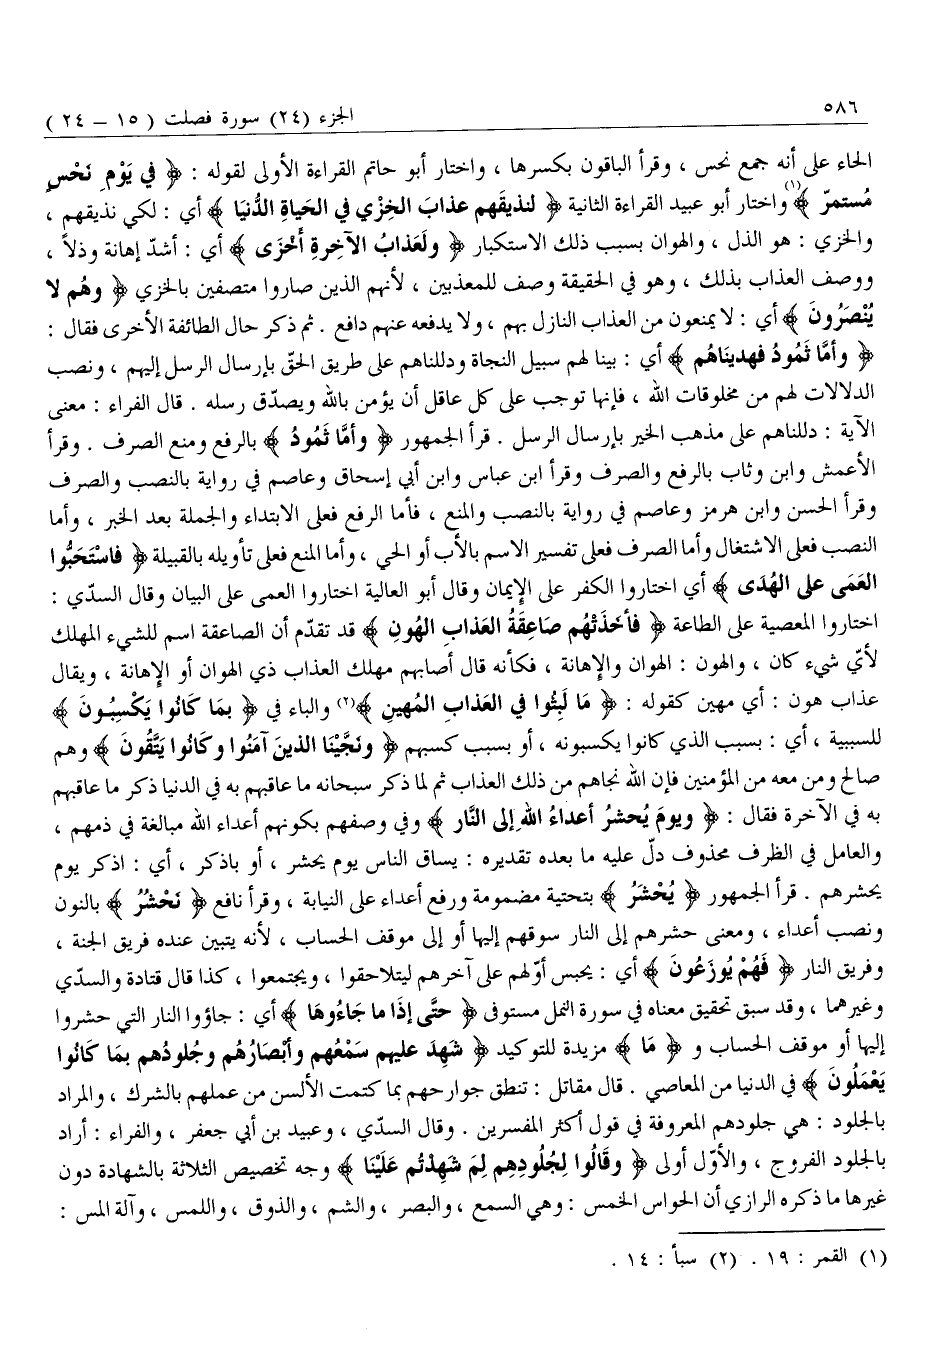 ٥٨٦
الجزء (٢٤) سورة فصلت ( ١٥ – ٢٤ )
الحاء على أنه جمع نحس ، وقرأ الباقون بكسرها ، واختار أبو حاتم القراءة الأولى لقوله : ﴿ في يَوْمِ نَحْسٍ
مُستمرّ ﴾(١) واختار أبو عبيد القراءة الثانية ﴿ لنذيقَهم عذابَ الخِزْي في الحَياةِ الدُّنيَا ﴾ أي : لكي نذيقهم ،
والخزي : هو الذل ، والهوان بسبب ذلك الاستكبار ﴿ ولَعذابُ الآخرةِ أَخْزَى ﴾ أي : أشدّ إهانة وذلاً ،
ووصف العذاب بذلك ، وهو في الحقيقة وصف للمعذبين ، لأنهم الذين صاروا متصفين بالخزي ﴿ وهُم لا
يُنْصَرُونَ ﴾ أي : لا يمنعون من العذاب النازل بهم ، ولا يدفعه عنهم دافع . ثم ذكر حال الطائفة الأخرى فقال :
﴿ وأمَّا ثَمُودُ فهديناهُم ﴾ أي : بينا لهم سبيل النجاة ودللناهم على طريق الحقّ بإرسال الرسل إليهم ، ونصب
الدلالات لهم من مخلوقات الله ، فإنها توجب على كل عاقل أن يؤمن بالله ويصدّق رسله . قال الفراء : معنى
الآية : دللناهم على مذهب الخير بإرسال الرسل . قرأ الجمهور ﴿ وأمَّا ثَمُودُ ﴾ بالرفع ومنع الصرف . وقرأ
الأعمش وابن وثاب بالرفع والصرف وقرأ ابن عباس وابن أبي إسحاق وعاصم في رواية بالنصب والصرف
وقرأ الحسن وابن هرمز وعاصم في رواية بالنصب والمنع ، فأما الرفع فعلى الابتداء والجملة بعد الخبر ، وأما
النصب فعلى الاشتغال وأما الصرف فعلى تفسير الاسم بالأب أو الحي ، وأما المنع فعلى تأويله بالقبيلة ﴿ فاسْتَحَبُّوا
العَمَى على الهُدَى ﴾ أي اختاروا الكفر على الإِيمان وقال أبو العالية اختاروا العمى على البيان وقال السدّي :
اختاروا المعصية على الطاعة ﴿ فأخَذَتْهُم صَاعِقَةُ العَذابِ الهُونِ ﴾ قد تقدّم أن الصاعقة اسم للشيء المهلك
لأيّ شيء كان ، والهون : الهوان والإِهانة ، فكأنه قال أصابهم مهلك العذاب ذي الهوان أو الإِهانة ، ويقال
عذاب هون : أي مهين كقوله : ﴿ مَا لَبِثُوا في العَذابِ المُهينِ ﴾(٢) والباء في ﴿ بِمَا كَانُوا يَكْسِبُونَ ﴾
للسببية ، أي : بسبب الذي كانوا يكسبونه ، أو بسبب كسبهم ﴿ ونَجَّيْنَا الذينَ آمَنُوا وكانُوا يَتَّقُونَ ﴾ وهم
صالح ومن معه من المؤمنين فإن الله نجاهم من ذلك العذاب ثم لما ذكر سبحانه ما عاقبهم به في الدنيا ذكر ما عاقبهم
به في الآخرة فقال : ﴿ ويومَ يُحشرُ أعداءُ اللهِ إلى النَّار ﴾ وفي وصفهم بكونهم أعداء الله مبالغة في ذمهم ،
والعامل في الظرف محذوف دلّ عليه ما بعده تقديره : يساق الناس يوم يحشر ، أو باذكر ، أي : اذكر يوم
يحشرهم . قرأ الجمهور ﴿ يُحْشَرُ ﴾ بتحتية مضمومة ورفع أعداء على النيابة ، وقرأ نافع ﴿ نَحْشُرُ ﴾ بالنون
ونصب أعداء ، ومعنى حشرهم إلى النار سوقهم إليها أو إلى موقف الحساب ، لأنه يتبين عنده فريق الجنة ،
وفريق النار ﴿ فَهُمْ يُوزَعُونَ ﴾ أي : يحبس أوّلهم على آخرهم ليتلاحقوا ، ويجتمعوا ، كذا قال قتادة والسدّي
وغيرهما ، وقد سبق تحقيق معناه في سورة النمل مستوفى ﴿ حتَّى إذَا ما جَاءُوهَا ﴾ أي : جاؤوا النار التي حشروا
إليها أو موقف الحساب و ﴿ مَا ﴾ مزيدة للتوكيد ﴿ شَهِدَ عليهم سَمْعُهم وأبْصَارُهُم وجُلودُهم بمَا كَانُوا
يَعْمَلُونَ ﴾ في الدنيا من المعاصي . قال مقاتل : تنطق جوارحهم بما كتمت الألسن من عملهم بالشرك ، والمراد
بالجلود : هي جلودهم المعروفة في قول أكثر المفسرين . وقال السدّي ، وعبيد بن أبي جعفر ، والفراء : أراد
بالجلود الفروج ، والأوّل أولى ﴿ وقَالُوا لِجُلودِهِم لِمَ شَهِدْتُم عَلَيْنَا ﴾ وجه تخصيص الثلاثة بالشهادة دون
غيرها ما ذكره الرازي أن الحواس الخمس : وهي السمع ، والبصر ، والشم ، والذوق ، واللمس ، وآلة المس :
(١) القمر : ١٩ . (٢) سبأ : ١٤ .